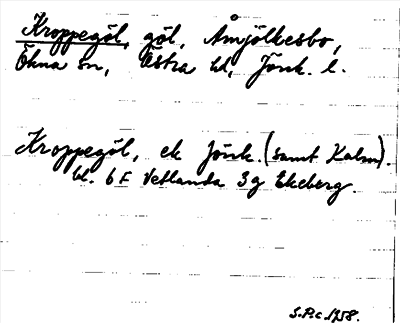 Kroppegöl, göl, Åmjölkesbo,
Ökna sn, Östra hd, Jönk. l.
Kroppegöl, ek Jönk. (samt Kalm).
bl. 6 F Vetlanda 3g Ekeberg.
S.P.c. 1958.